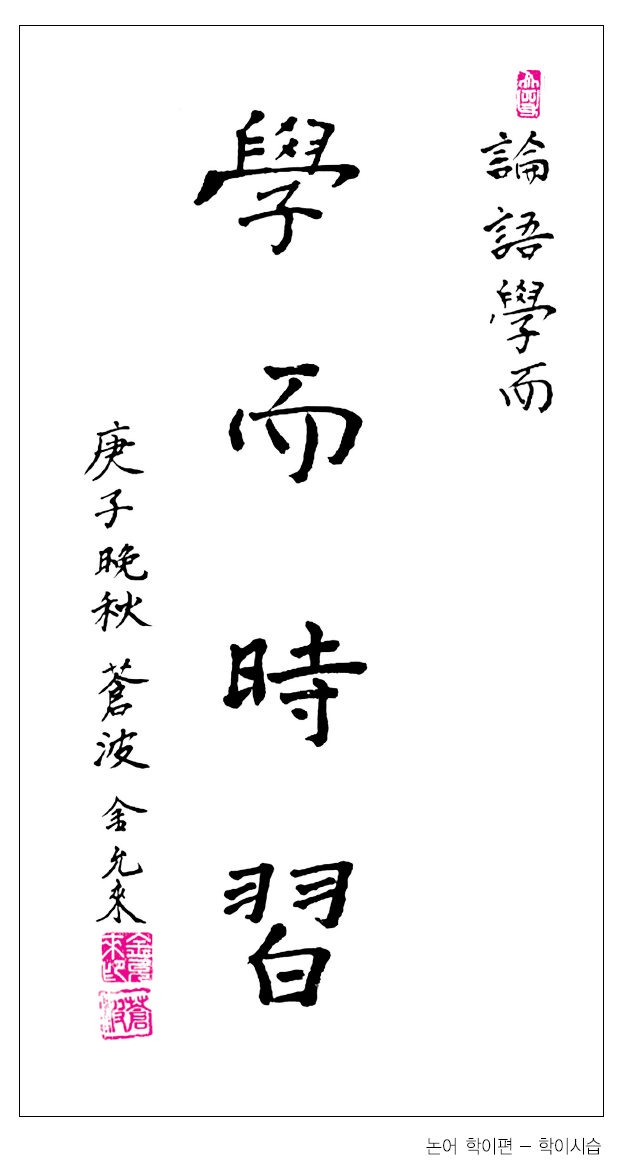 論語學而
學而時習
庚子晚秋 蒼波 金允來
논어 학이편 – 학이시습